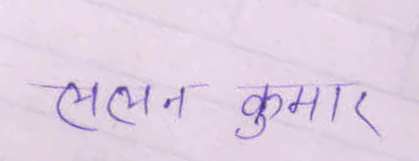 ललन कुमार